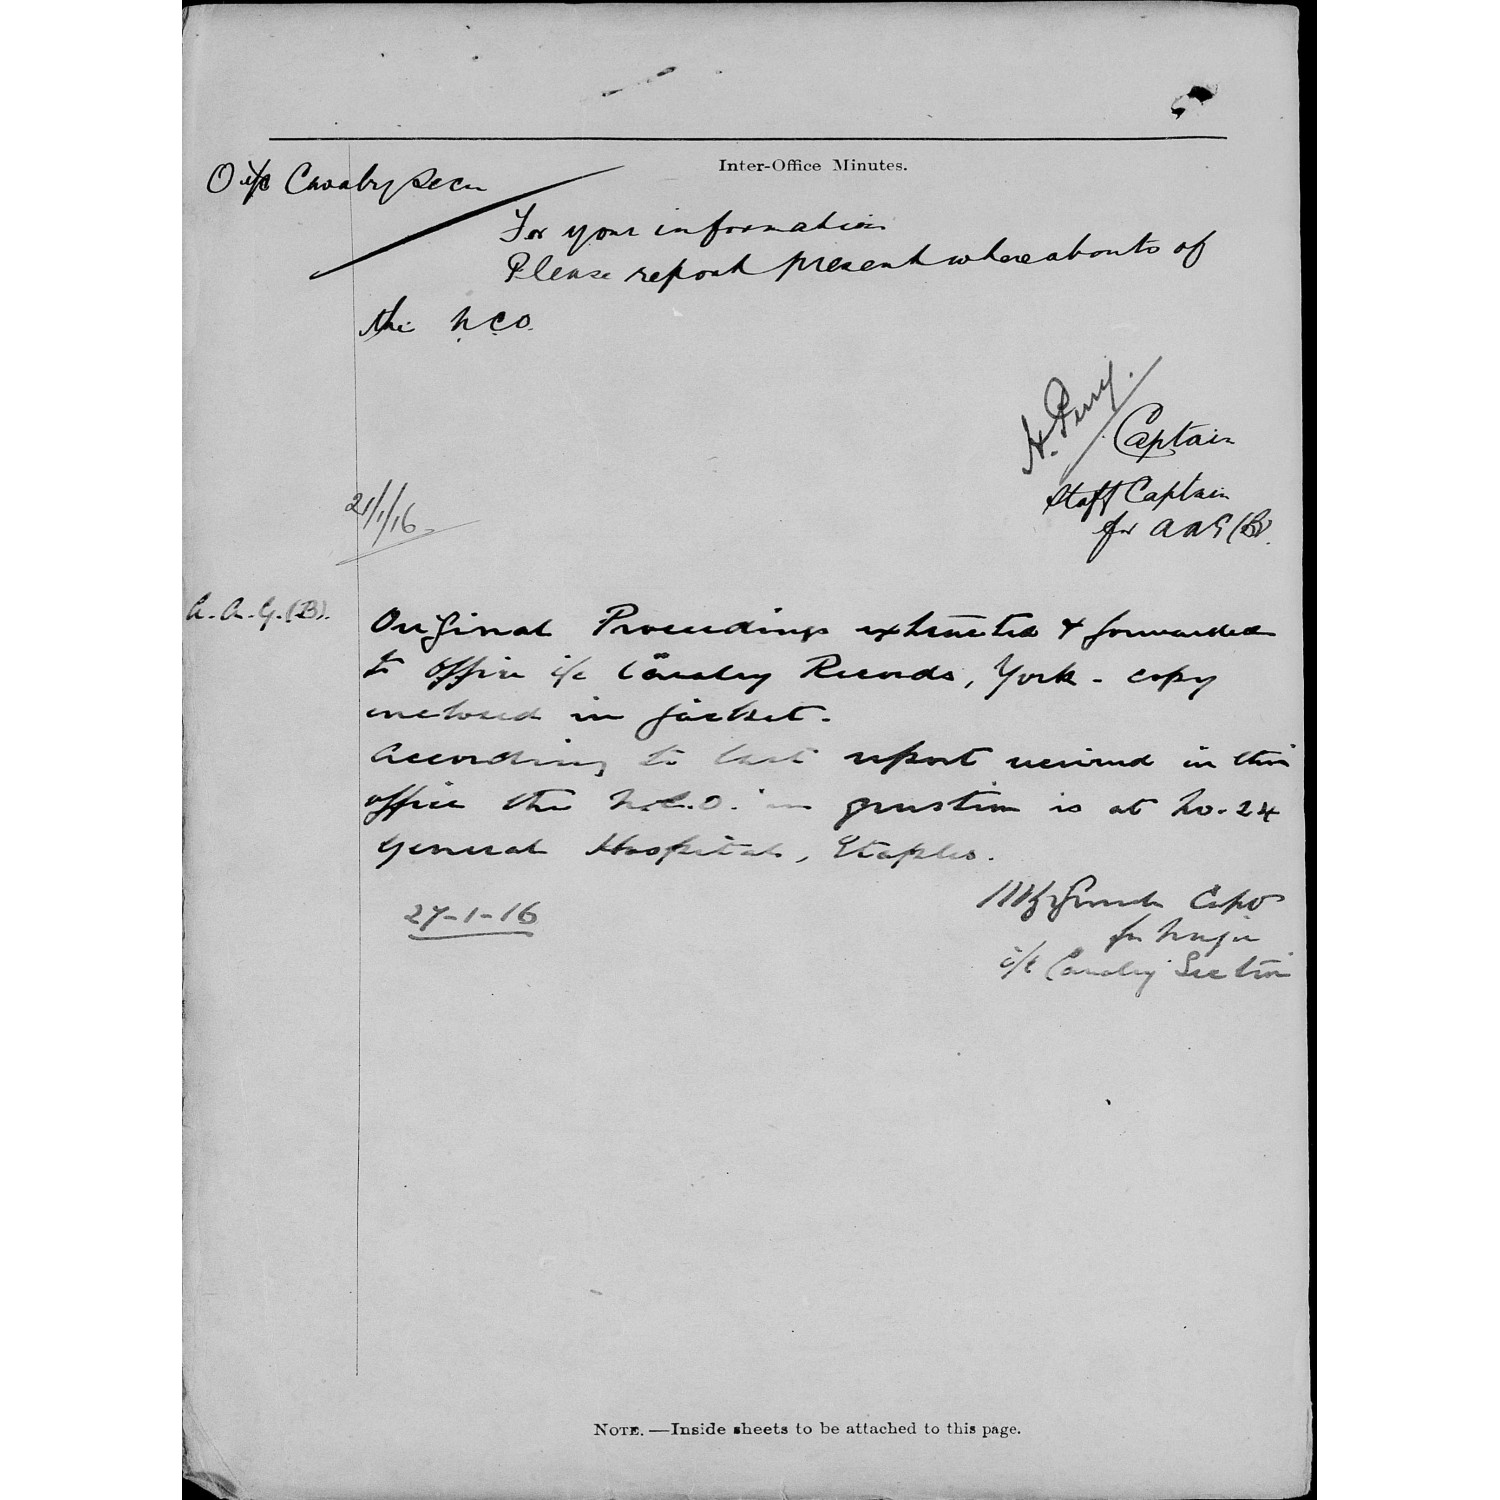 Inter-Office Minutes.
O i/c Cavalry Secn
For your information
Please report present whereabouts of
the N.C.O.
H. Perry.
Captain
Staff Captain
for AAG (B).
21/1/16
A.A.G.(B).
Original Proceedings extracted & forwarded
to Officer i/c Cavalry Records, York - copy
enclosed in jacket.
According to last report received in this
office the N.C.O. in question is at No. 24
General Hospital, Etaples.
27-1-16
Capt
for Major
i/c Cavalry Section
NOTE.—Inside sheets to be attached to this page.